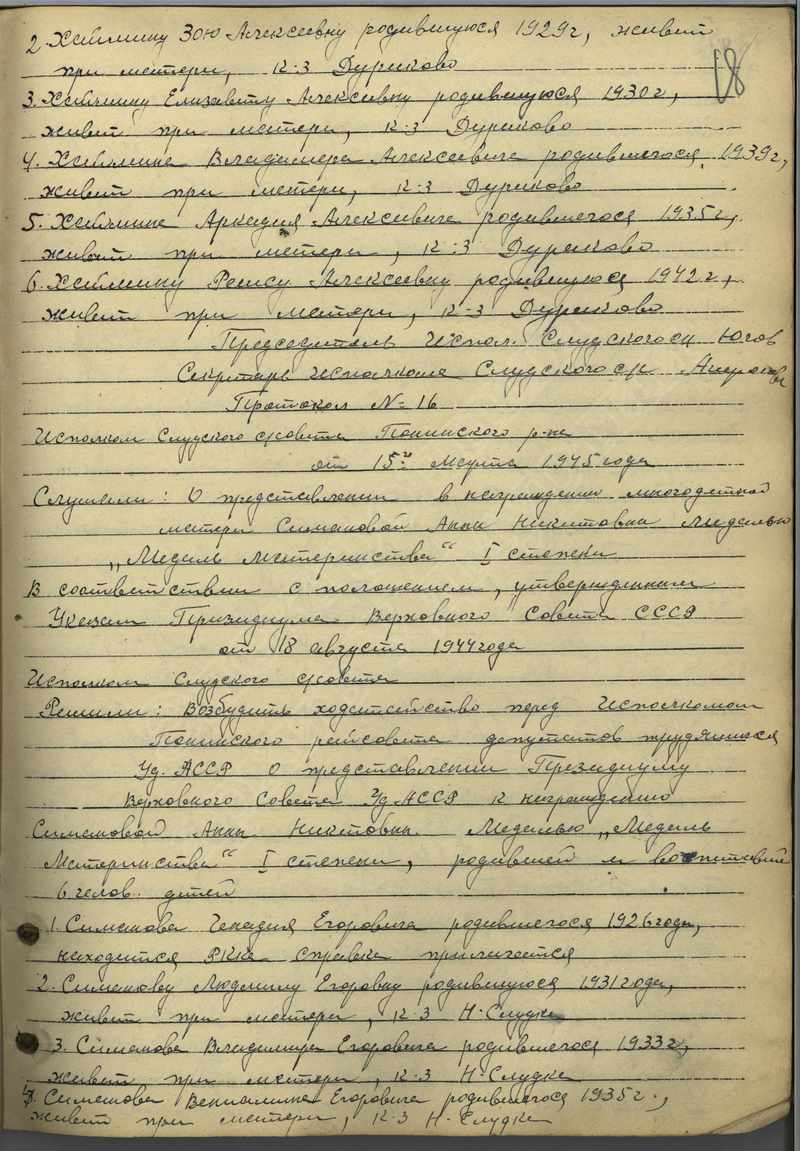 2. Хаймину Зою Алексеевну родившуюся 1929 г, живет
18
при матери, к-з Дураково
3. Хаймину Елизавету Алексеевну родившуюся 1930 г,
живет при матери, к-з Дураково
4. Хаймина Владимера Алексеевича родившегося 1939 г,
живет при матери, к-з Дураково
5. Хаймина Аркадия Алексеевича родившегося 1935 г,
живет при матери, к-з Дураково
6. Хаймину Раису Алексеевну родившуюся 1942 г,
живет при матери, к-з Дураково
Председатель Испол. Слудского с/с Югов
Секретарь исполкома Слудского с/с
Протокол N- 16
Исполком Слудского с/совета Понинского р-на
от 15го Марта 1945 года
Слушали: О представлении в награждении многодетной
матери Симаковой Анны Никитовны Медалью
„Медаль Материнства“ I степени
В соответствии с положением, утвержденным
Указам Президиума Верховного Совета СССР
от 18 августа 1944 года
Исполком Слудского с/совета
Решили: Возбудить ходотайство перед Исполкомом
Понинского райсовета депутатов трудящихся
Уд. АССР о представлении Президиуму
Верховного Совета Уд АССР к награждению
Симаковой Анны Никитовны Медалью „Медаль
Материнства“ I степени, родившей и воспитавшей
6 челов. детей
1. Симакова Генадия Егоровича родившегося 1926 года,
находится РККА справка прилагается
2. Симакову Людмилу Егоровну родившуюся 1931 года,
живет при матери, к-з Н-Слудка
3. Симакова Владимира Егоровича родившегося 1933 г,
живет при матери, к-з Н-Слудка
4. Симакова Вениамина Егоровича родившегося 1935 г.,
живет при матери, к-з Н-Слудка